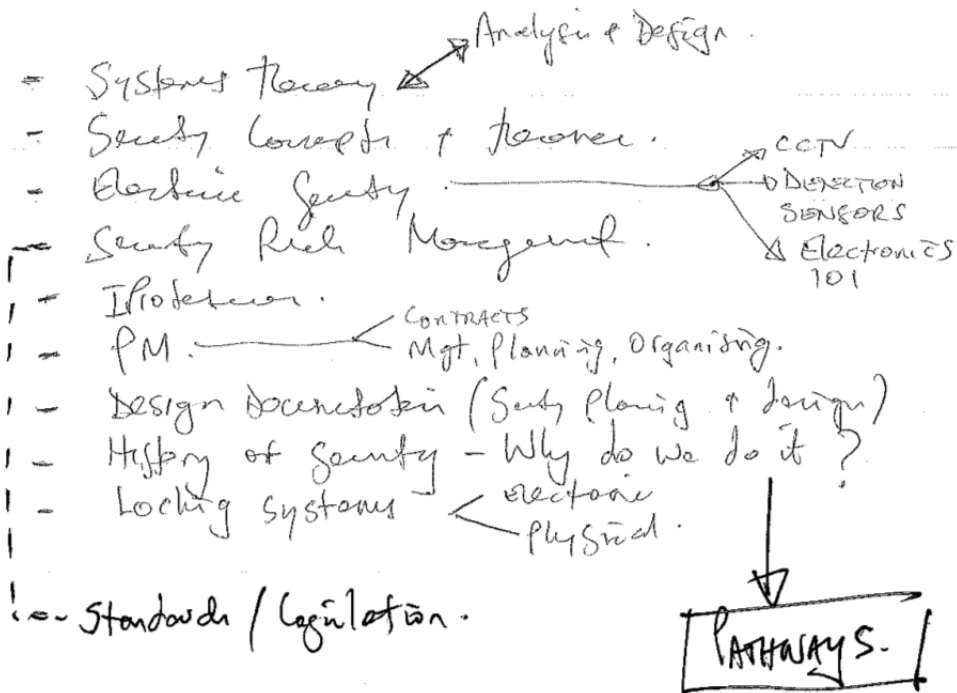 Analysis & Design.
- Systems Theory
- Security Concepts +
CCTV
- Electronic Security.
DETECTION
SENSORS
- Security Risk Management.
Electronics
101
CONTRACTS
- PM.
Mgt, Planning, Organising.
- Design Documentation (Security Planning & design)
- History of Security - Why do we do it?
- Locking Systems
Electronic
Physical.
- Standards / Legislation.
PATHWAYS.